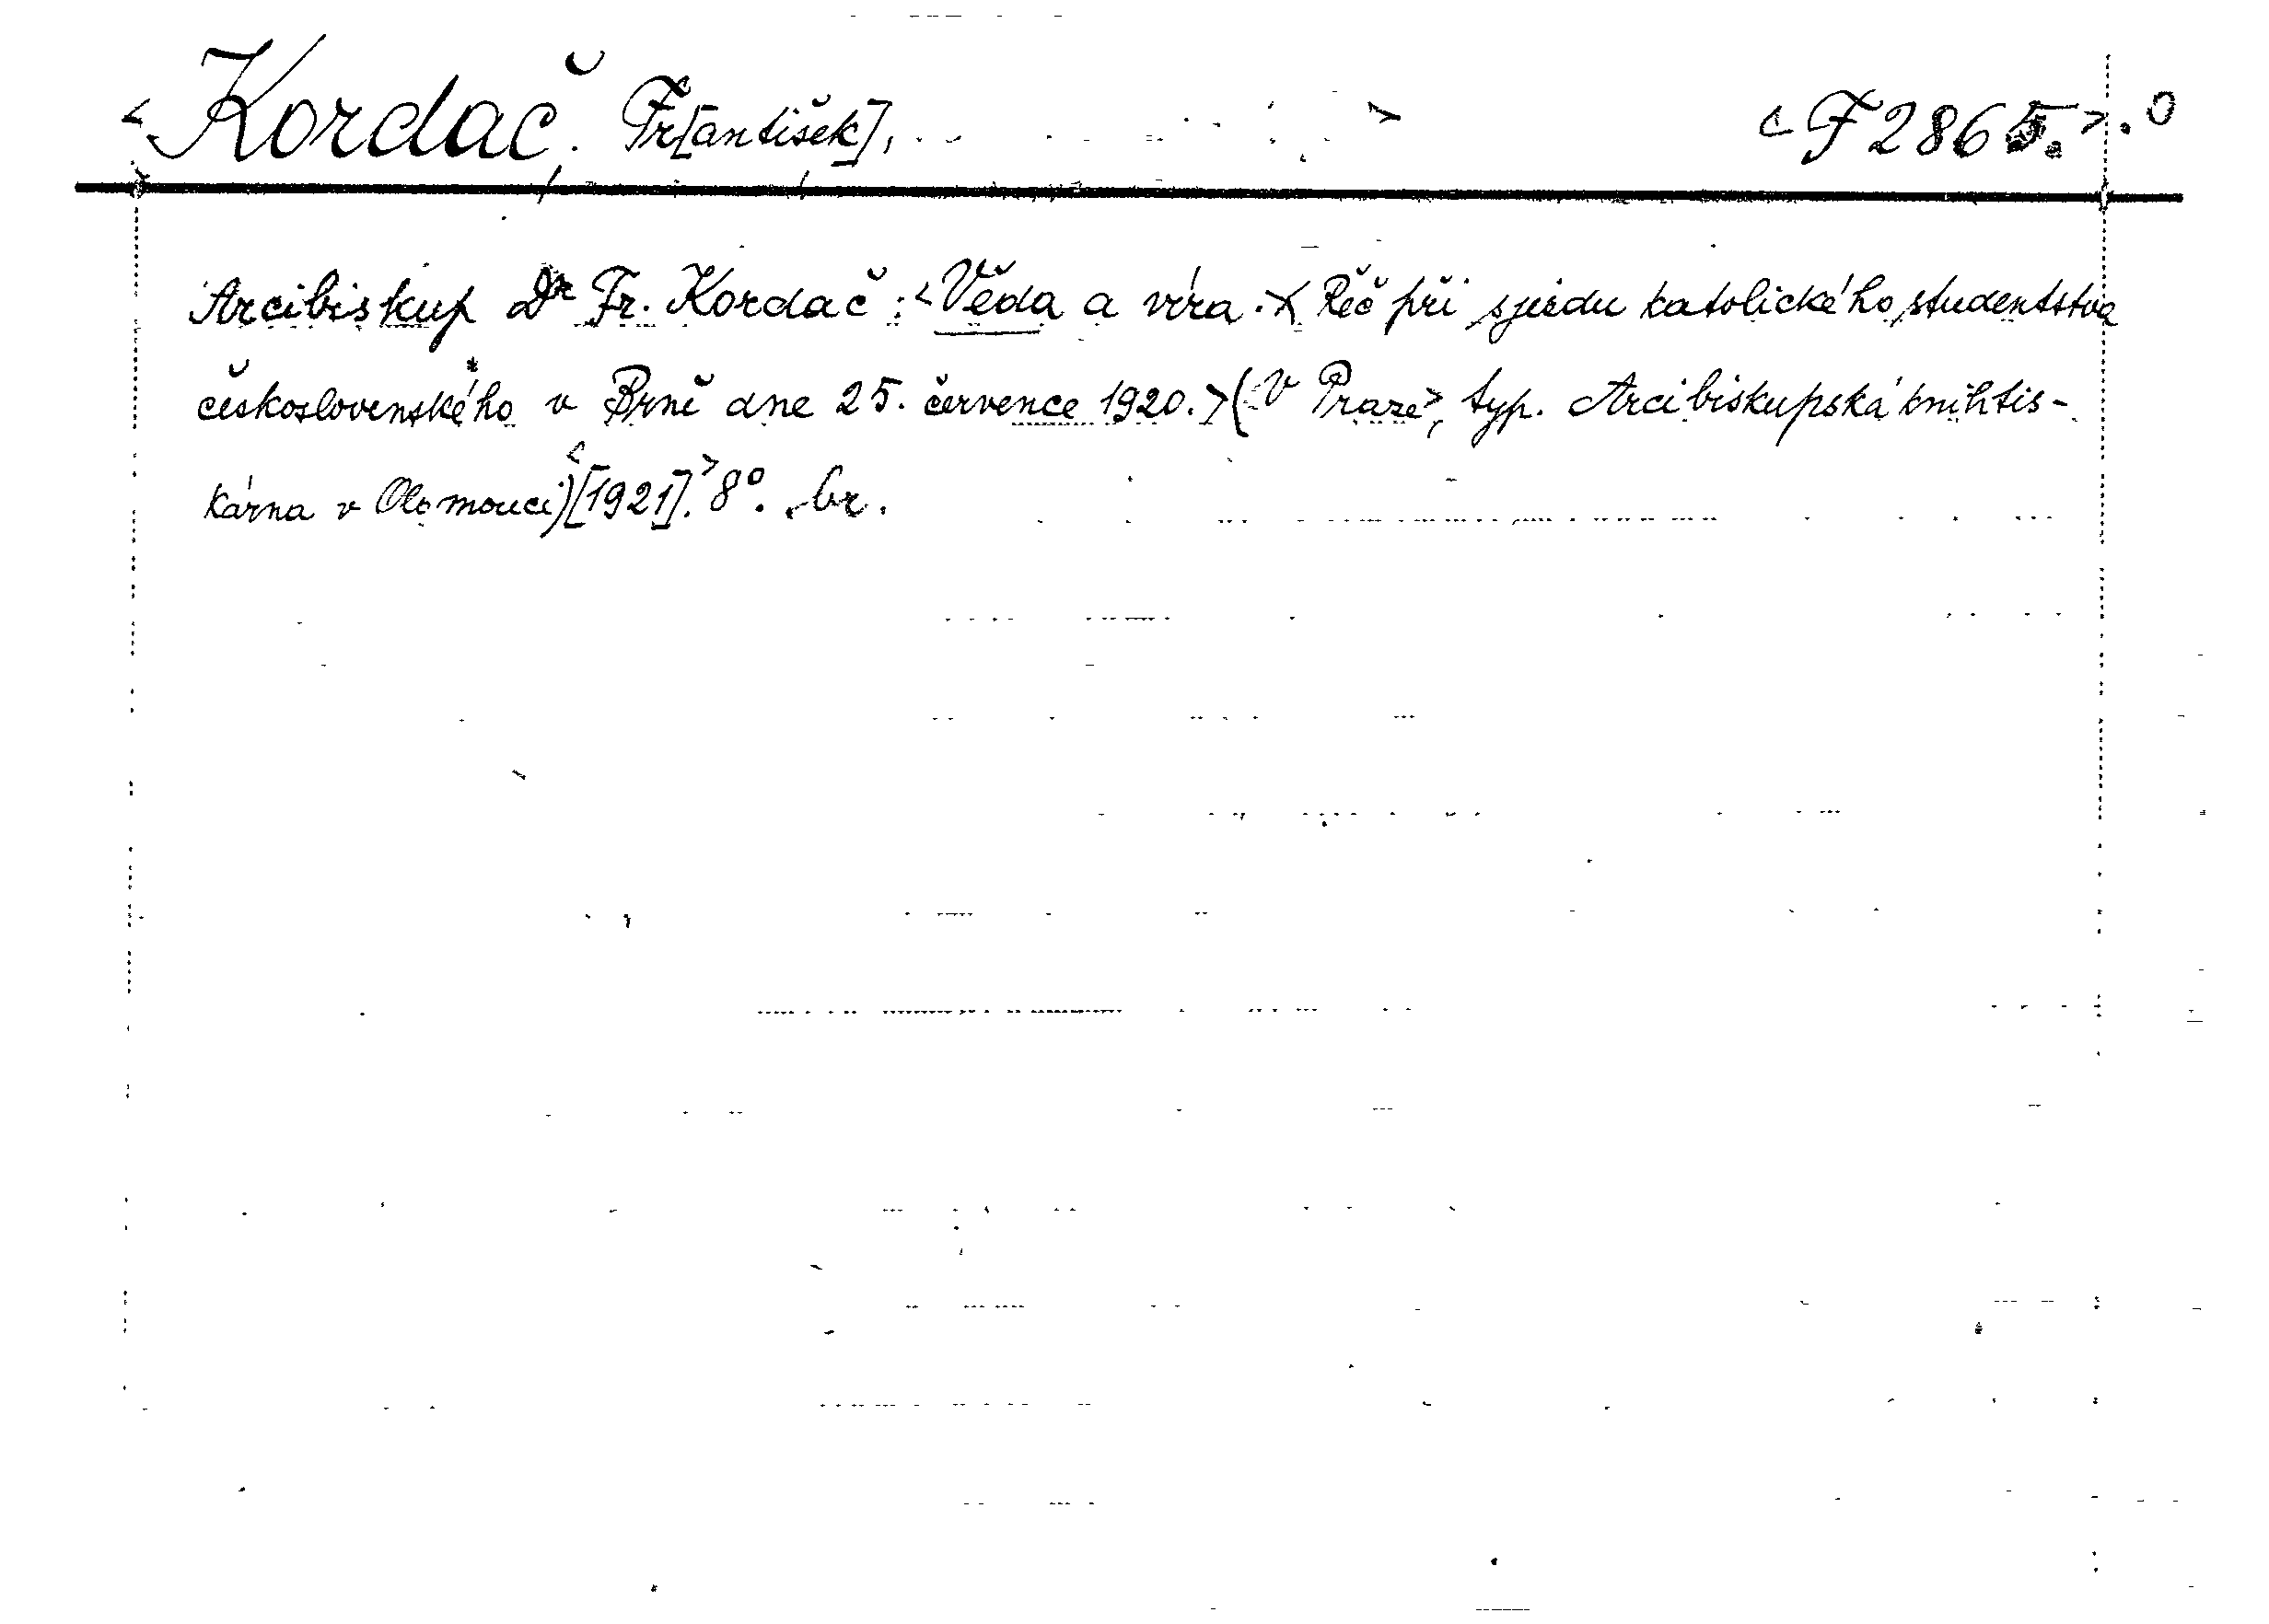 <Kordač, Fr[antišek], > <F 2865.>.0
Arcibiskup Dr Fr. Kordač: <Věda a víra.X Řeč při sjezdu katolického studentstva
československého v Brně dne 25. července 1920.>(<V Praze>, typ. Arcibiskupská knihtis-
kárna v Olomouci)<[1921].> 8°. br.